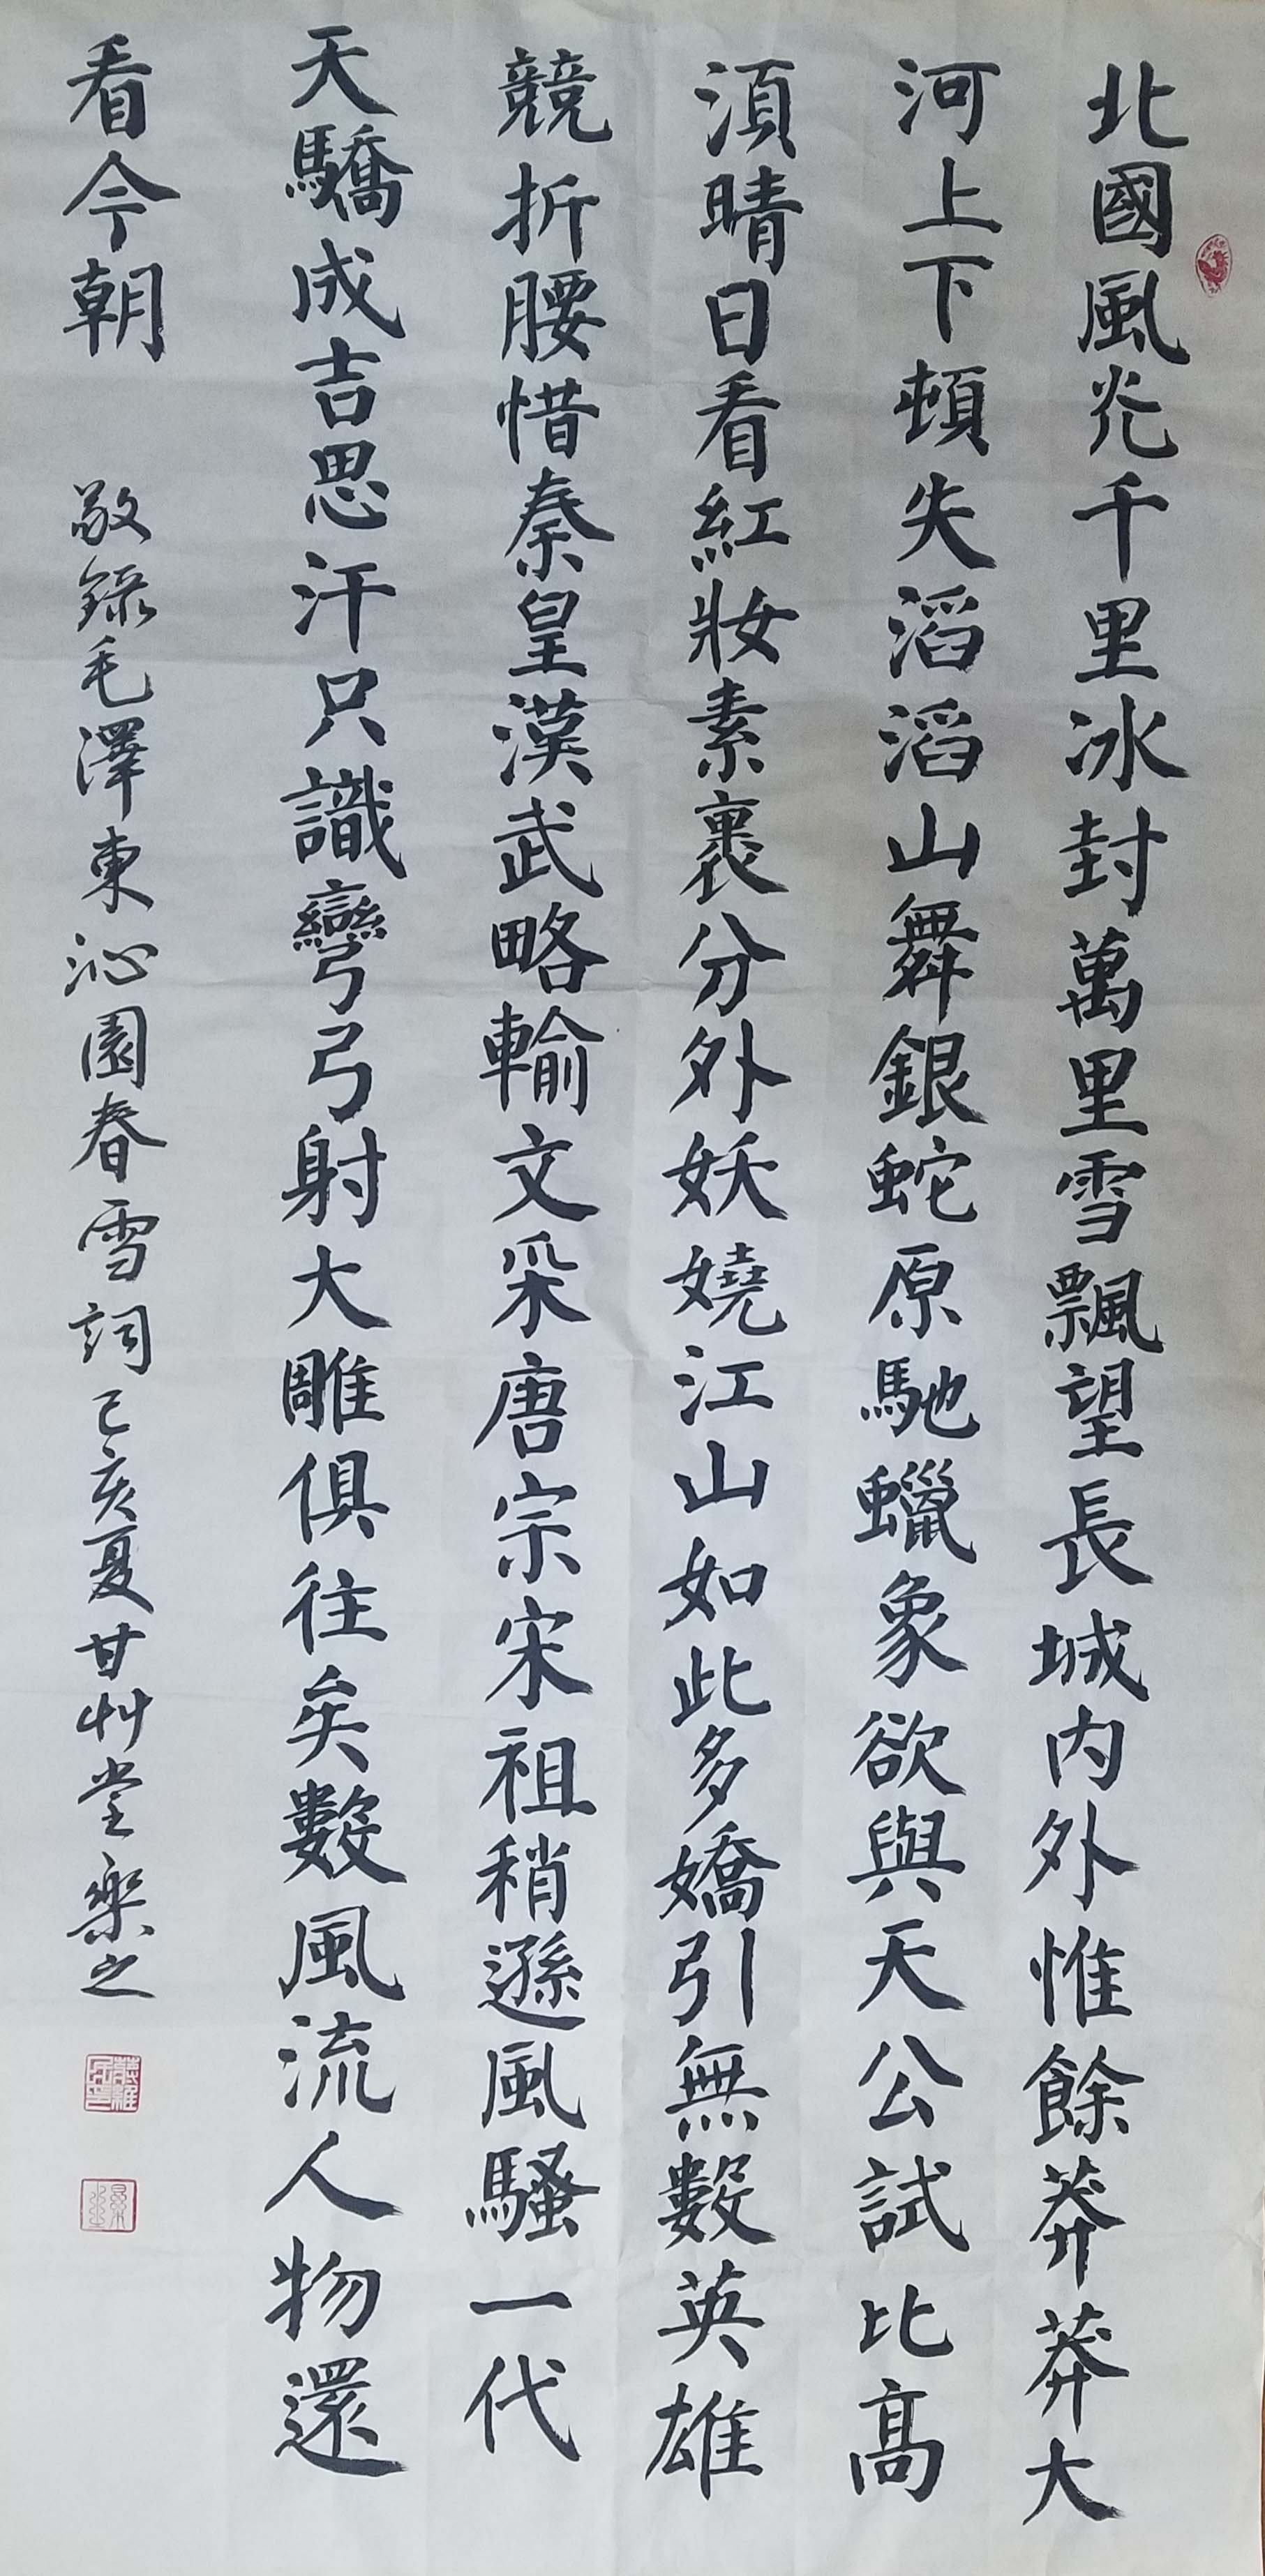 北國風光千里冰封萬里雪飄望長城内外惟餘莽莽大
河上下頓失滔滔山舞銀蛇原馳蠟象欲與天公試比高
湏晴日看紅妝素裹分外妖嬈江山如此多嬌引無數英雄
競折腰惜秦皇漢武略輸文采唐宗宋祖稍遜風騷一代
天驕成吉思汗只識彎弓射大雕俱往矣數風流人物還
看今朝
敬錄毛澤東沁園春雪詞己亥夏甘艸堂樂之